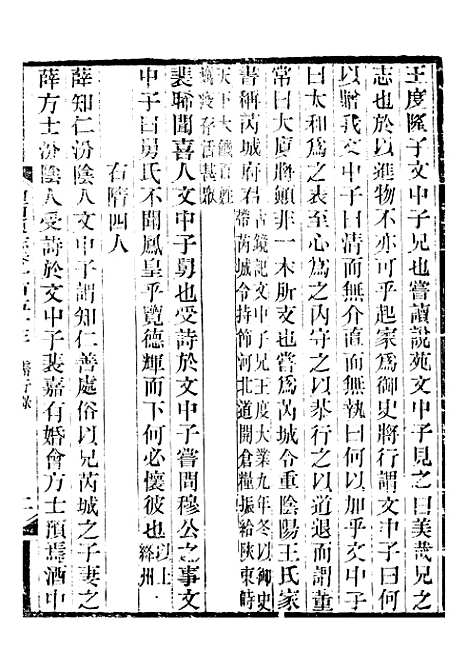 王度隆子文中子兄也嘗讀說苑文中子見之曰美哉兄之
志也以進物不亦可乎起家爲御史將行謂文中子曰何
以贈我文中子曰淸而無介直而無執曰何以加乎文中子
曰太和爲之表至心爲之內守之以恭行之以道退而謂董
常曰大廈將顚非一木所支也嘗爲芮城令重陰陽王氏家
書稱芮城府君古鏡記文中子兄王度大業九年冬以御史
帶芮城令持節河北道開倉糧振給陝東時
天下大饑百姓
裴晞聞喜人文中子舅也受詩於文中子嘗問穆公之事文
中子曰舅氏不聞鳳皇乎覽德輝而下何必懷彼也以上
絳州
右隋四人
薛知仁汾陰人文中子謂知仁善處俗以兄芮城之子妻之
薛方士汾陰人受詩於文中子裴嘉有婚會方士預焉酒中